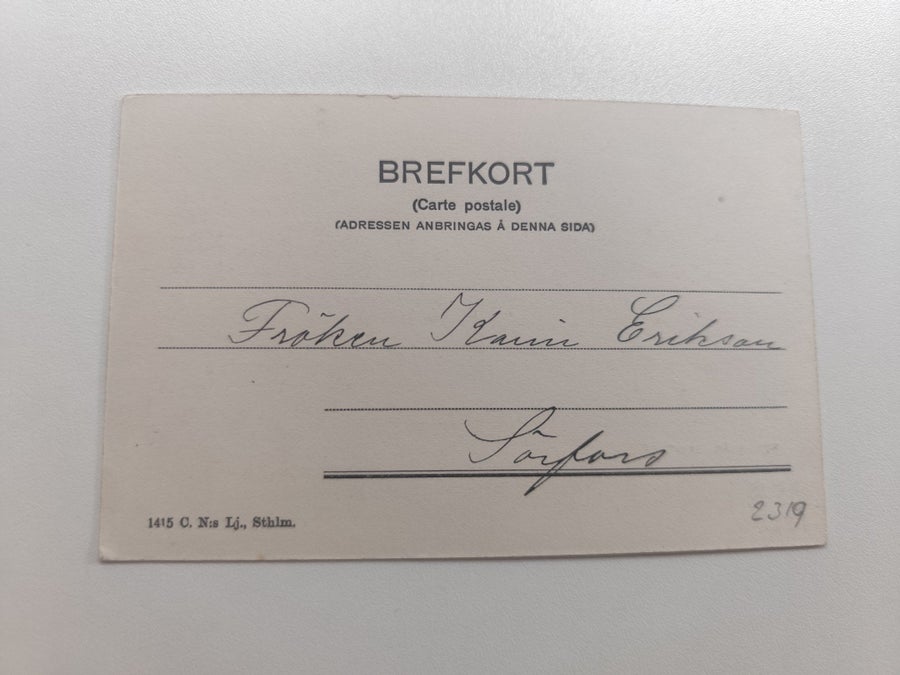 BREFKORT
(Carte postale)
(ADRESSEN ANBRINGAS Å DENNA SIDA)
Fröken Karin Erikson
Sörfors
1415 C. N:s Lj., Sthlm.
2319